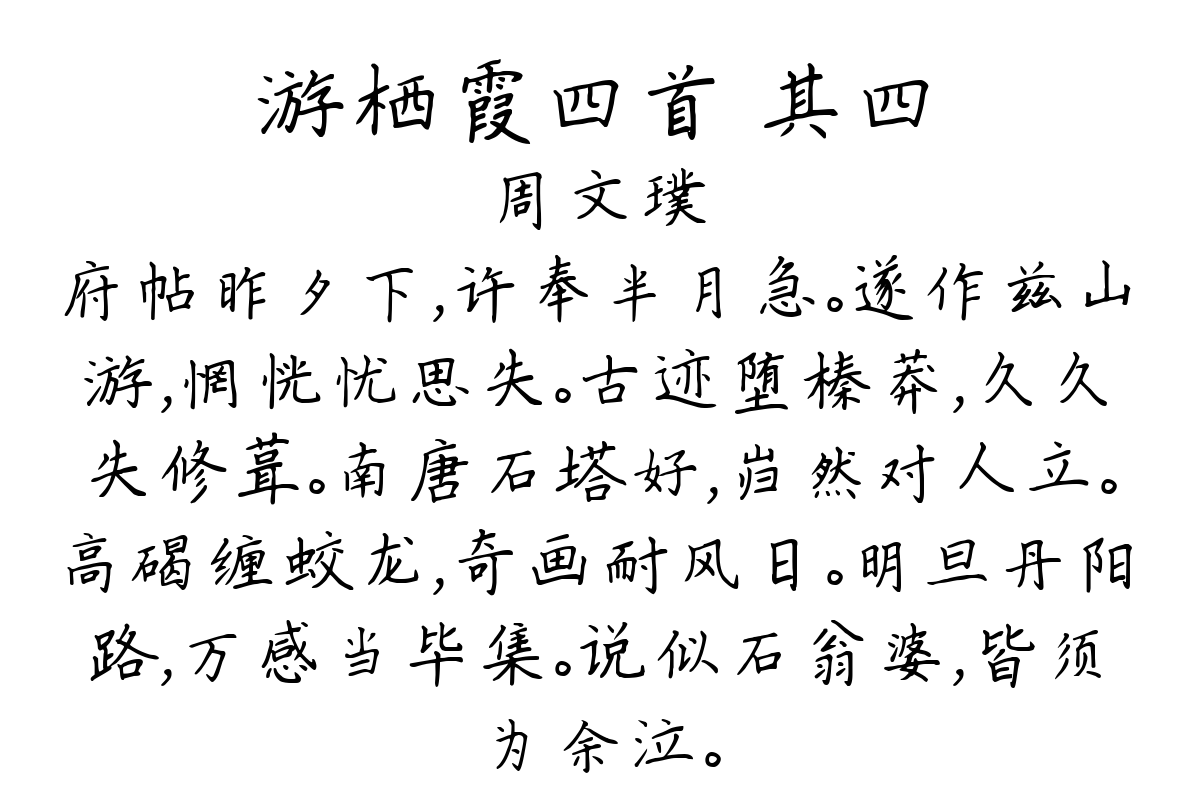 游栖霞四首 其四
周文璞
府帖昨夕下,许奉半月急。遂作兹山
游,惘恍忧思失。古迹堕榛莽,久久
失修葺。南唐石塔好,岿然对人立。
高碣缠蛟龙,奇画耐风日。明旦丹阳
路,万感当毕集。说似石翁婆,皆须
为余泣。